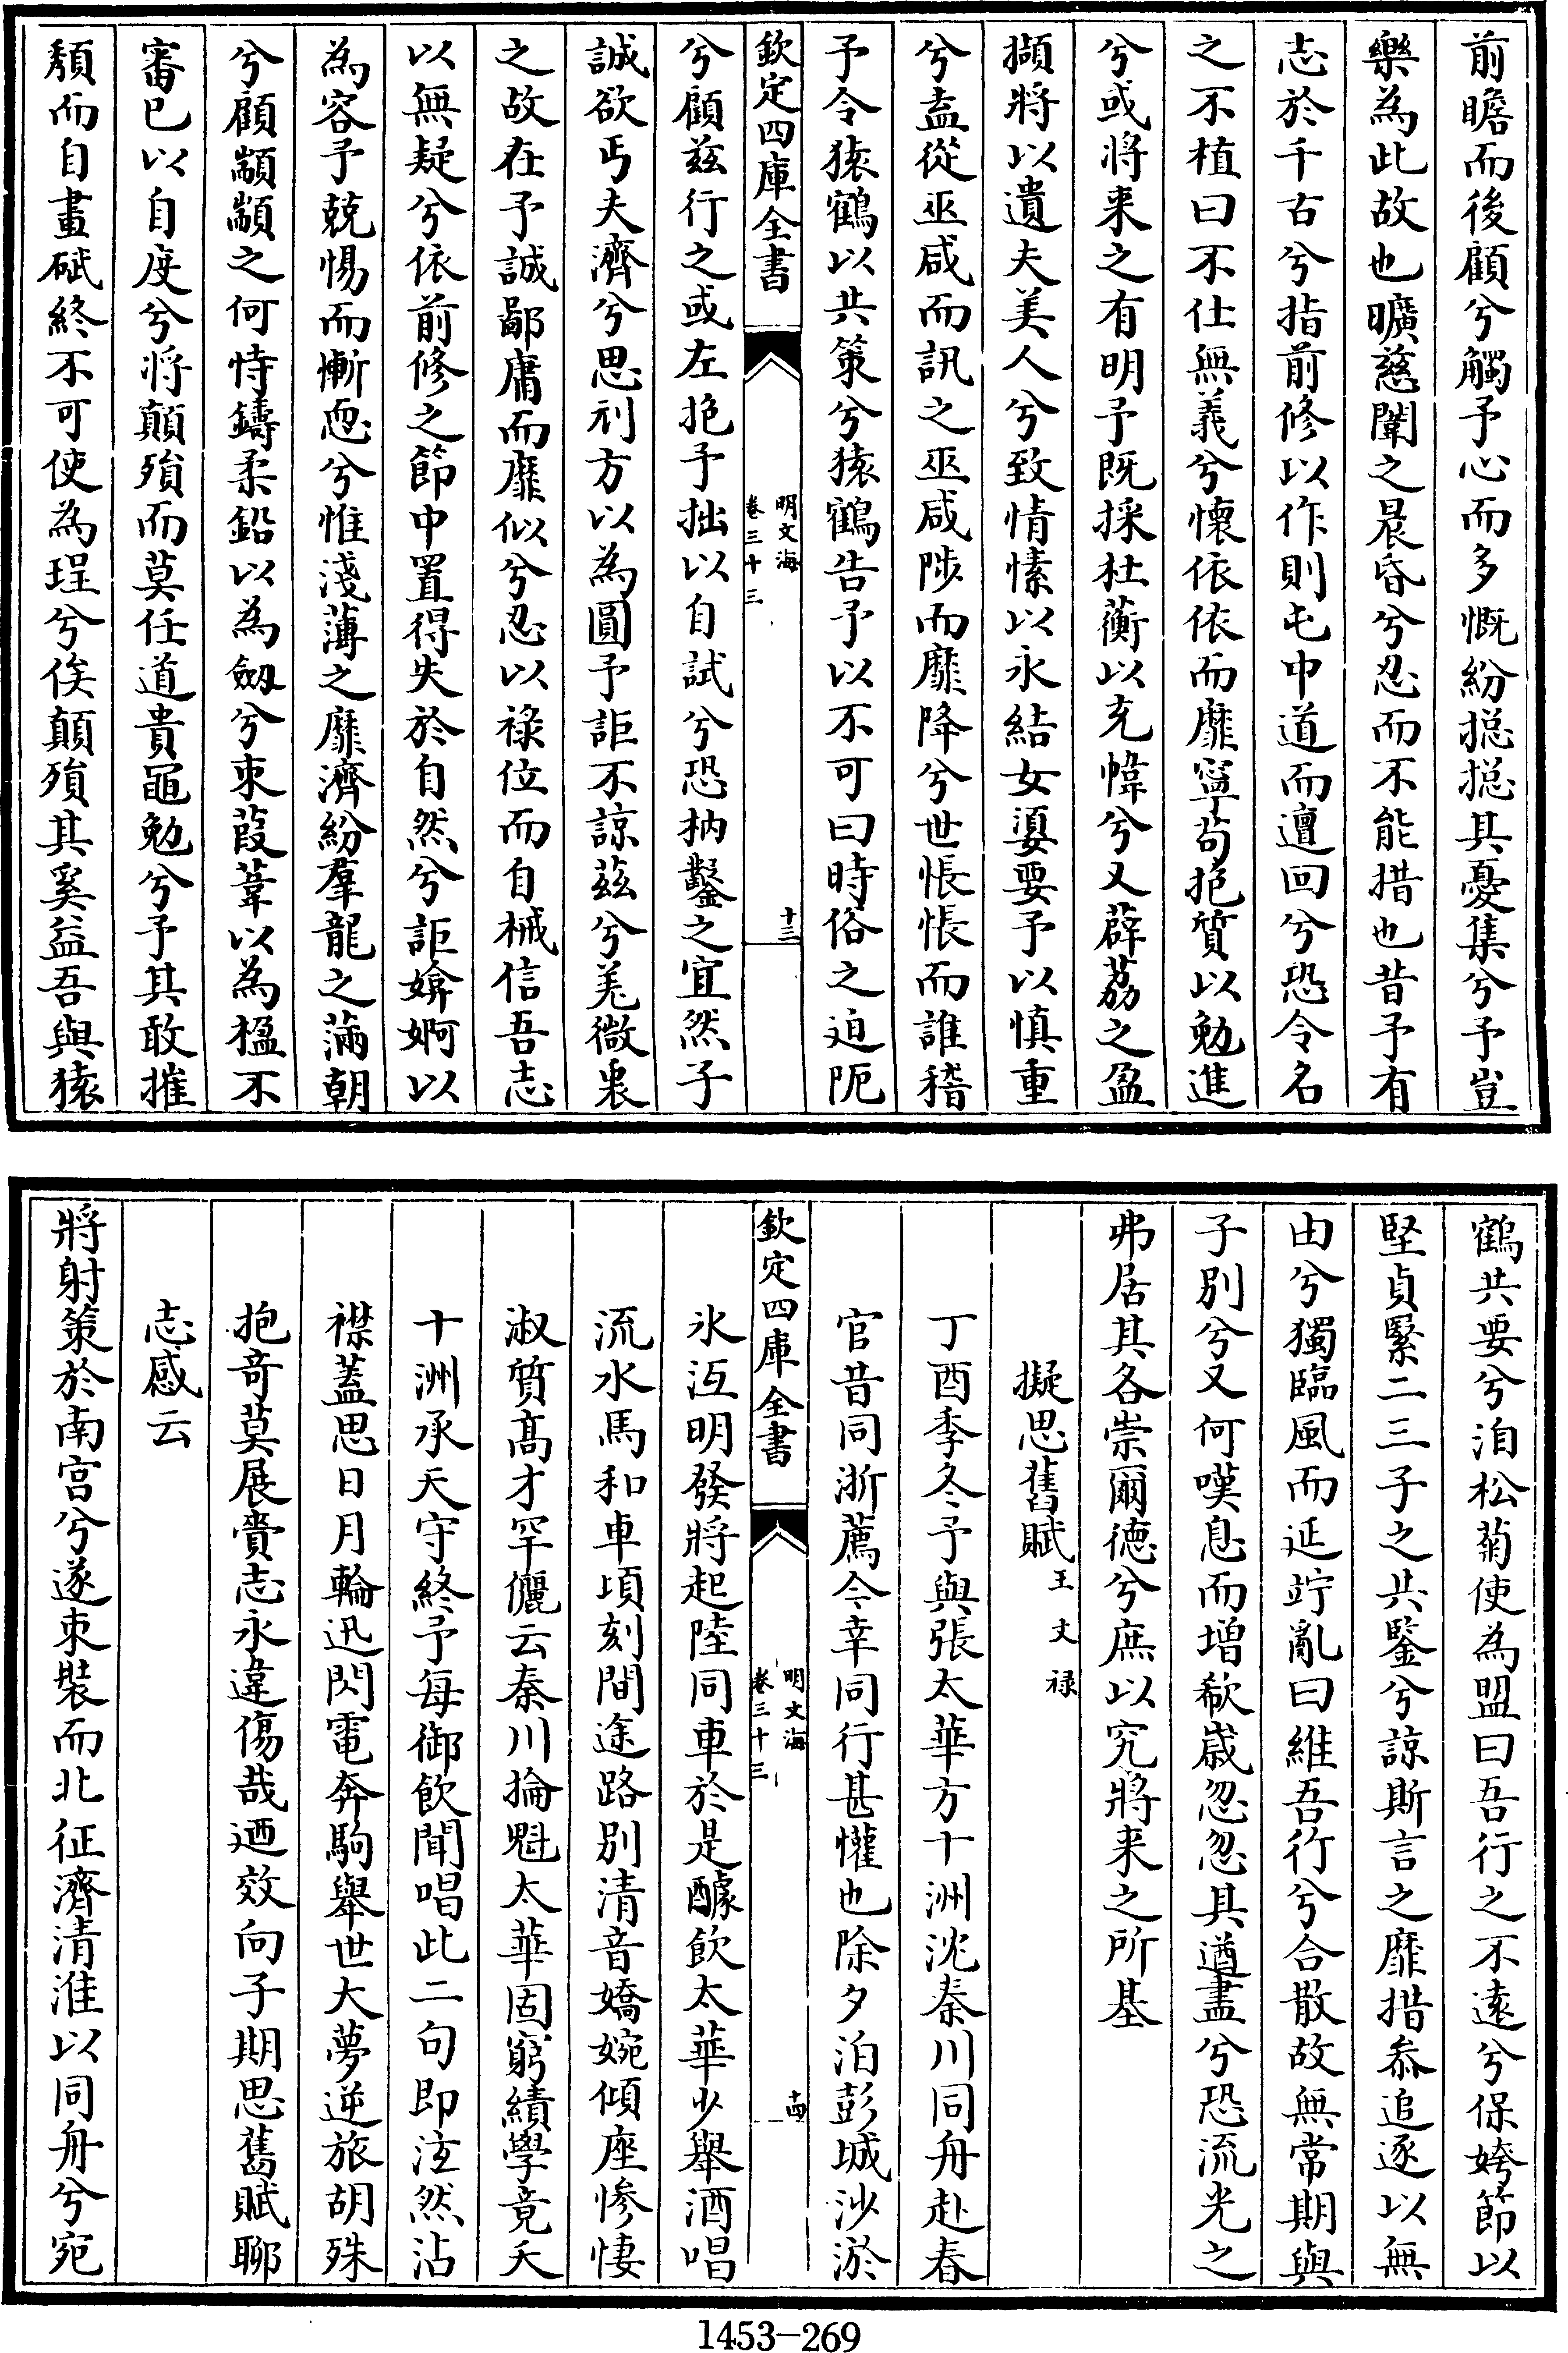 前瞻而後顧兮觸予心而多慨紛揔揔其憂集兮予豈
樂為此故也曠慈闈之晨昏兮忍而不能措也昔予有
志於千古兮指前修以作則屯中道而邅回兮恐令名
之不植曰不仕無義兮懷依依而靡寧苟抱質以勉進
兮或將来之有明予既採杜蘅以充幃兮又薜荔之盈
擷將以遺夫美人兮致情愫以永結女媭要予以慎重
兮盍從巫咸而訊之巫咸陟而靡降兮世悵悵而誰稽
予令猿鶴以共策兮猿鶴告予以不可曰時俗之迫阨
欽定四庫全書
明文海
卷三十三
十三
兮顧兹行之或左抱予拙以自試兮恐枘鑿之宜然子
誠欲丐夫濟兮思刓方以為圓予詎不諒兹兮羌微衷
之故在予誠鄙庸而靡似兮忍以祿位而自械信吾志
以無疑兮依前修之節中置得失於自然兮詎媕婀以
為容予兢惕而慚恧兮惟淺薄之靡濟紛羣龍之滿朝
兮顧顓顓之何恃鑄柔鉛以為劔兮束葭葦以為楹不
審已以自度兮將顛殞而莫任道貴黽勉兮予其敢摧
頽而自畫碔終不可使為珵兮俟顛殞其奚益吾與猿
鶴共要兮洎松菊使為盟曰吾行之不遠兮保姱節以
堅貞緊二三子之共鑒兮諒斯言之靡措忝追逐以無
由兮獨臨風而延竚亂曰維吾行兮合散故無常期與
子别兮又何嘆息而增欷歲忽忽其遒盡兮恐流光之
弗居其各崇爾德兮庶以究將来之所基
擬思舊賦王文禄
丁酉季冬予與張太華方十洲沈秦川同舟赴春
官昔同浙薦今幸同行甚懽也除夕泊彭城沙淤
欽定四庫全書
明文海
卷三十三
十四
氷沍明發將起陸同車於是醵飲太華少舉酒唱
流水馬和車頃刻間途路别清音嬌婉傾座慘悽
淑質髙才罕儷云秦川掄魁太華固窮績學竟夭
十洲承天守終予每御飲聞唱此二句即泫然沾
襟蓋思日月輪迅閃電奔駒舉世大夢逆旅胡殊
抱奇莫展賫志永違傷哉廼效向子期思舊賦聊
志感云
將射策於南宫兮遂束裝而北征濟清淮以同舟兮宛
1453—269